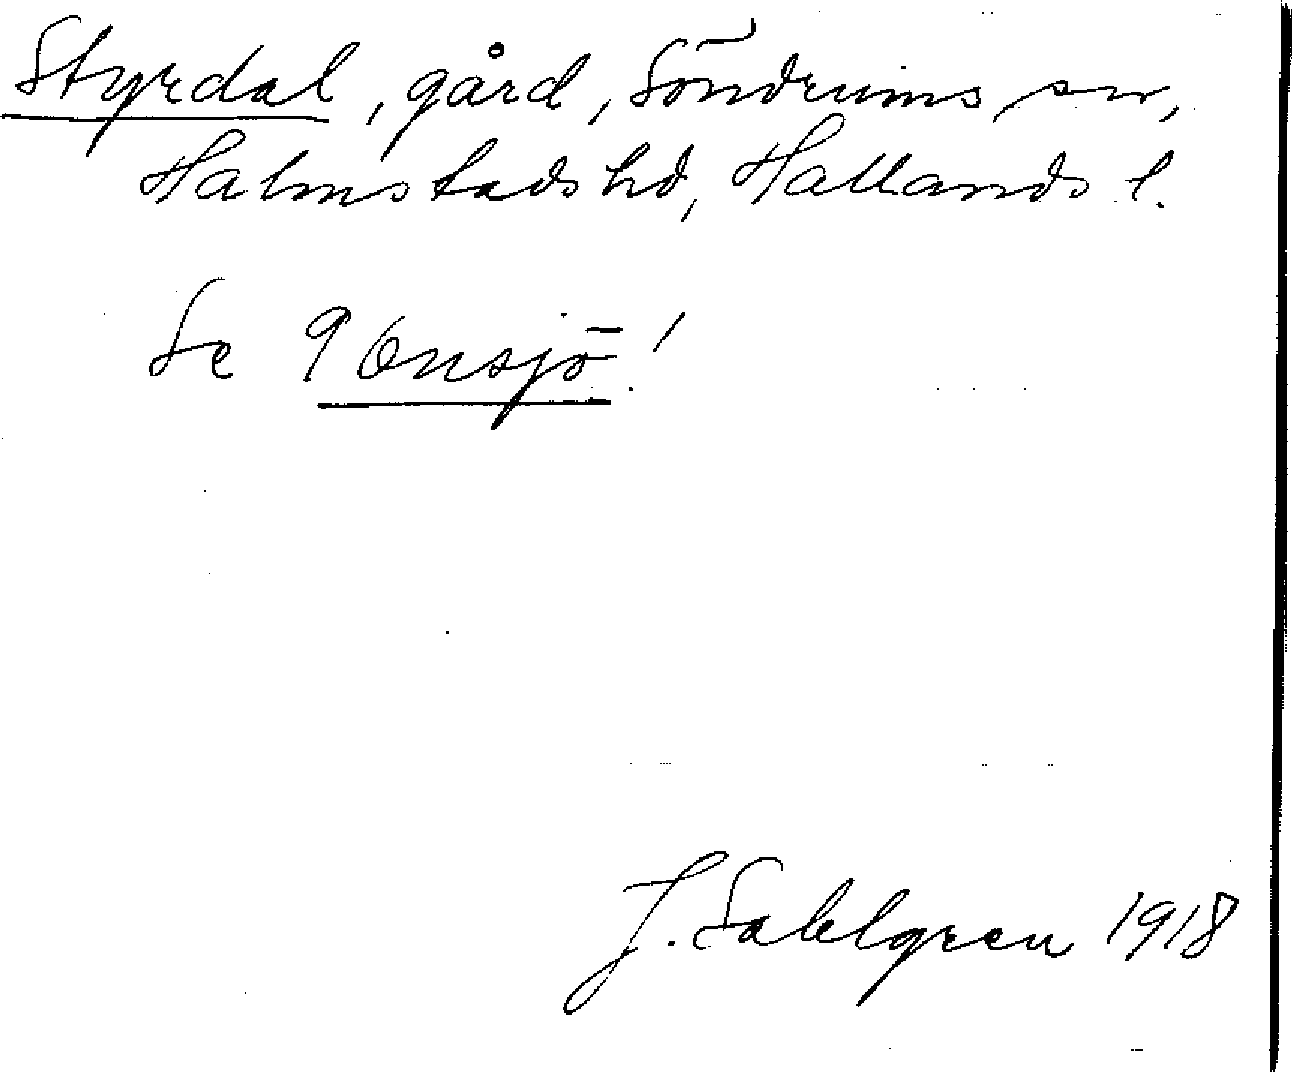 Styrdal, gård, Söndrums sn,
Halmstads hd, Hallands l.
Se 9 Onsjö!
J. Sahlgren 1918